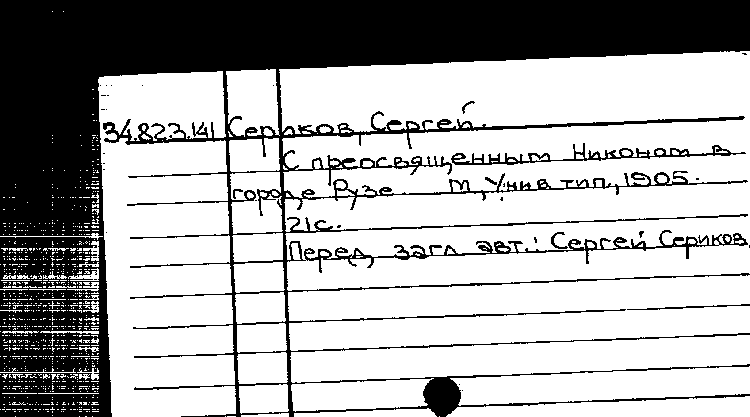 34.823.141 Сериков, Сергей.
С преосвященным Никоном в
городе Рузе М., Унив тип., 1905.
21с.
Перед загл авт.: Сергей Сериков